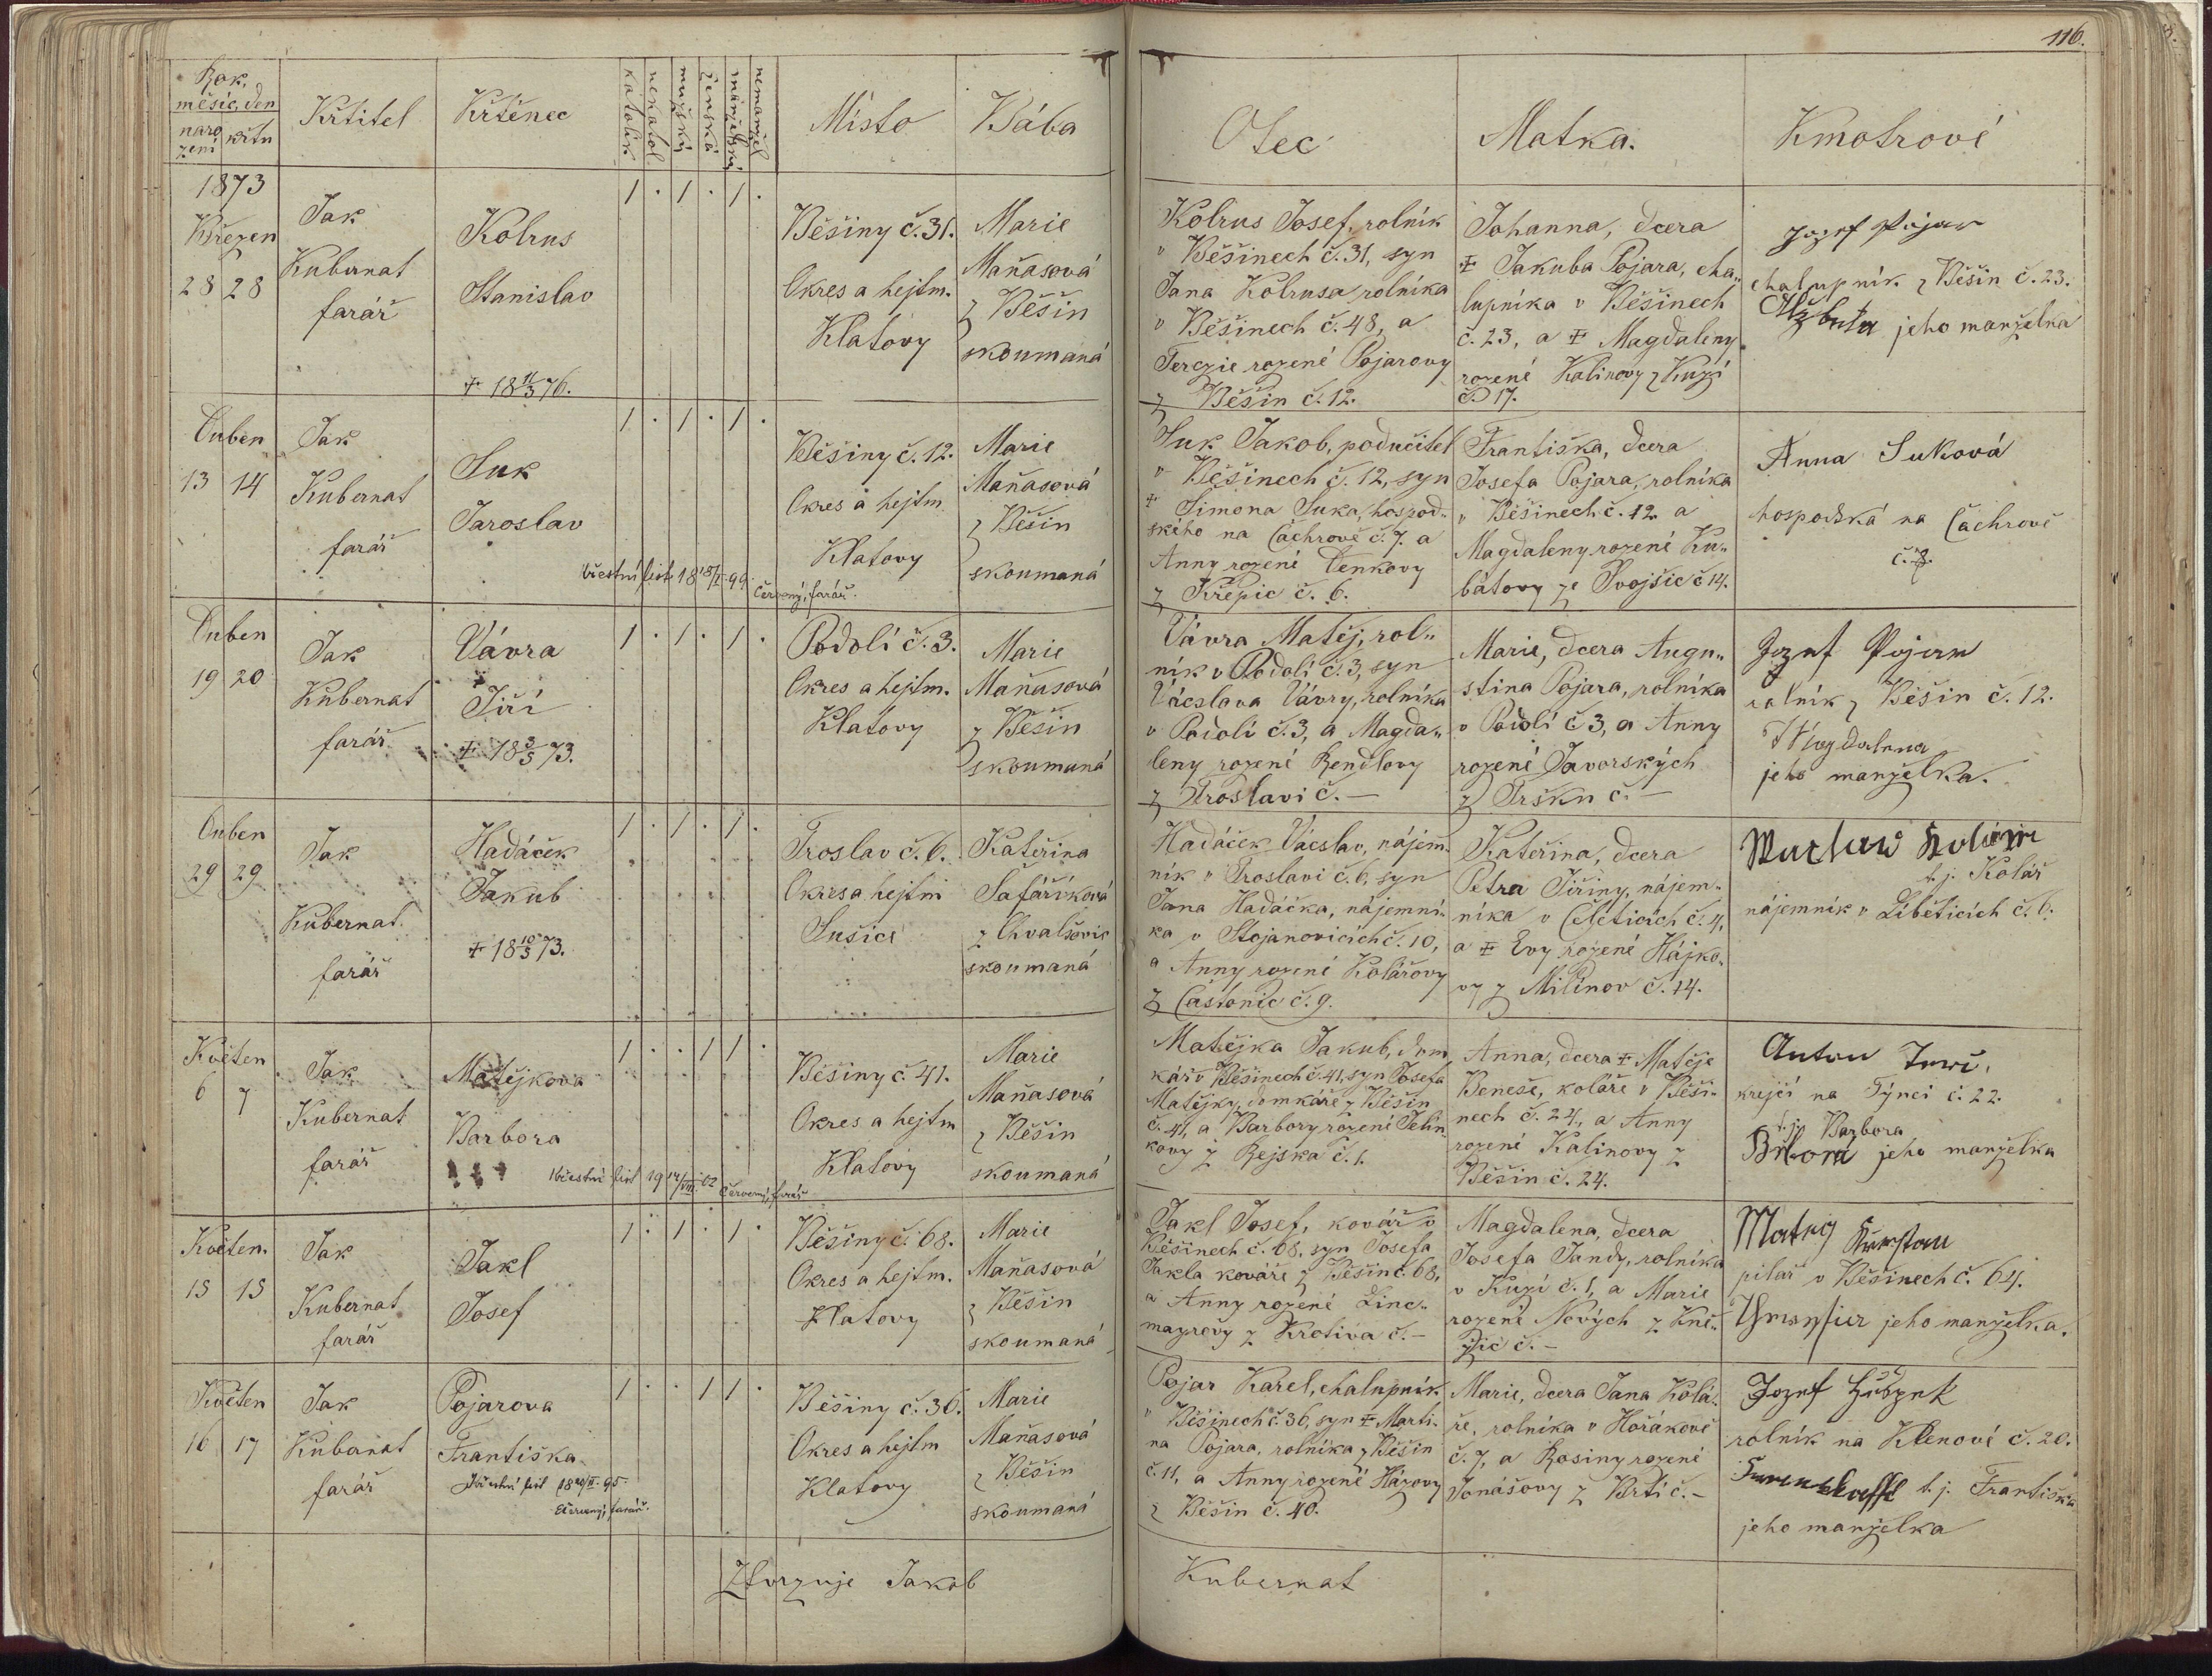 116.
Rok, měsíc, den
narození křtu
Křtitel
Křtěnec
katolík
nekatol.
mužský
ženská
manželský
nemanžel
Místo
Bába
Otec
Matka.
Kmotrové
1873
Březen
28 28
Jak
Kubernat
farář
Kolrus
Stanislav
✝ 18 11/3 76.
1 . 1 . 1 .
Běšiny č. 31.
Okres a hejtm.
Klatovy
Marie
Maňasová
z Běšin
skoumaná
Kolrus Josef, rolník
v Běšinech č. 31, syn
Jana Kolrusa rolníka
v Běšinech č. 48, a
Terezie rozené Pojarovy
z Běšin č. 12.
Johanna, dcera
✝ Jakuba Pojara, cha„
lupníka v Běšinech
č. 23, a ✝ Magdaleny
rozené Kalinovy z Kuzí
č. 17.
Jozef Pojar
chalupník z Běšin č. 23.
Alzbeta jeho manželka
Duben
13 14
Jak
Kubernat
farář
Suk
Jaroslav
křestní list 18 18/I 99.
Červený, farář.
1 . 1 . 1 .
Běšiny č. 12.
Okres a hejtm
Klatovy
Marie
Maňasová
z Běšin
skoumaná
Suk Jakob, podučitel
v Běšinech č. 12, syn
✝ Simona Suka, hospod„
ského na Čachrově č. 7. a
Anny rozené Denkovy
z Křepic č. 6.
Františka, dcera
Josefa Pojara, rolníka
v Běšinech č. 12 a
Magdaleny rozené Ku„
bátovy ze Svojšic č 14.
Anna Suková
hospodská na Čachrově
č. 7.
Duben
19 20
Jak
Kubernat
farář
Vávra
Jiří
✝ 18 3/5 73.
1 . 1 . 1 .
Podolí č. 3.
Okres a hejtm.
Klatovy
Marie
Maňasová
z Běšin
skoumaná
Vávra Matěj, rol„
ník v Podolí č. 3, syn
Václava Vávry, rolníka
v Podolí č. 3, a Magda„
leny rozené Rendlovy
z Troslavi č. —
Marie, dcera Augu„
stina Pojara, rolníka
v Podolí č 3, a Anny
rozené Javorských
z Tršku č. —
Jozef Pojar
rolník z Běšin č. 12.
Magdalena
jeho manželka.
Duben
29 29
Jak
Kubernat
farář
Hadáček
Jakub
✝ 18 10/5 73.
1 . 1 . 1 .
Troslav č. 6.
Okres a hejtm
Sušice
Kateřina
Šafáříková
z Chvalšovic
skoumaná
Hadáček Václav, nájem„
ník v Troslavi č. 6, syn
Jana Hadáčka, nájemní„
ka v Stojanovicích č. 10,
a Anny rozené Kolářovy
z Častonic č. 9.
Kateřina, dcera
Petra Jiřiny, nájem„
níka v Čeleticích č. 4,
a ✝ Evy rozené Hájko„
vy z Milínov č. 14.
t. j. Kolář
nájemník v Liběticích č. 6.
Květen
6 7
Jak
Kubernat
farář
Matějkova
Barbora
křestní list 19 14/VII. 02
Červený, farář
1 . . 1 1 .
Běšiny č. 41.
Okres a hejtm
Klatovy
Marie
Maňasová
z Běšin
skoumaná
Matějka Jakub, dom„
kář v Běšinech č. 41, syn Josefa
Matějky, domkáře z Běšin
č. 41, a Barbory rozené Jelín„
kovy z Rejska č. 1.
Anna, dcera ✝ Matěje
Beneše, koláře v Běši„
nech č. 24, a Anny
rozené Kalinovy z
Běšin č. 24.
krejčí na Týnci č. 22.
t. j. Barbora
jeho manželka
Květen.
15 15
Jak
Kubernat
farář
Jakl
Josef
1 . 1 . 1 .
Běšiny č. 68.
Okres a hejtm.
Klatovy
Marie
Maňasová
z Běšin
skoumaná
Jakl Josef, kovář v
Běšinech č. 68, syn Josefa
Jakla kováře z Běšin č. 68,
a Anny rozené Linc„
mayrovy z Krotiva č. —
Magdalena, dcera
Josefa Jandy, rolníka
v Kuzí č. 1, a Marie
rozené Nových z Kně„
žic č. —
pilař v Běšinech č. 64.
jeho manželka.
Květen
16 17
Jak
Kubernat
farář
Pojarova
Františka
Křestní list 18 20/II. 95
Červený, farář.
1 . . 1 1 .
Běšiny č. 36.
Okres a hejtm
Klatovy
Marie
Maňasová
z Běšin
skoumaná
Pojar Karel, chalupník
v Běšinech č. 36, syn ✝ Marti„
na Pojara, rolníka z Běšin
č. 11, a Anny rozené Házovy
z Běšin č. 40.
Marie, dcera Jana Kolá„
ře, rolníka v Hořákově
č. 7, a Rosiny rozené
Jonášovy z Brtí č. —
Jozef
rolník na Klenové č. 20.
t. j. Františka
jeho manželka
Ztvrzuje Jakob Kubernat